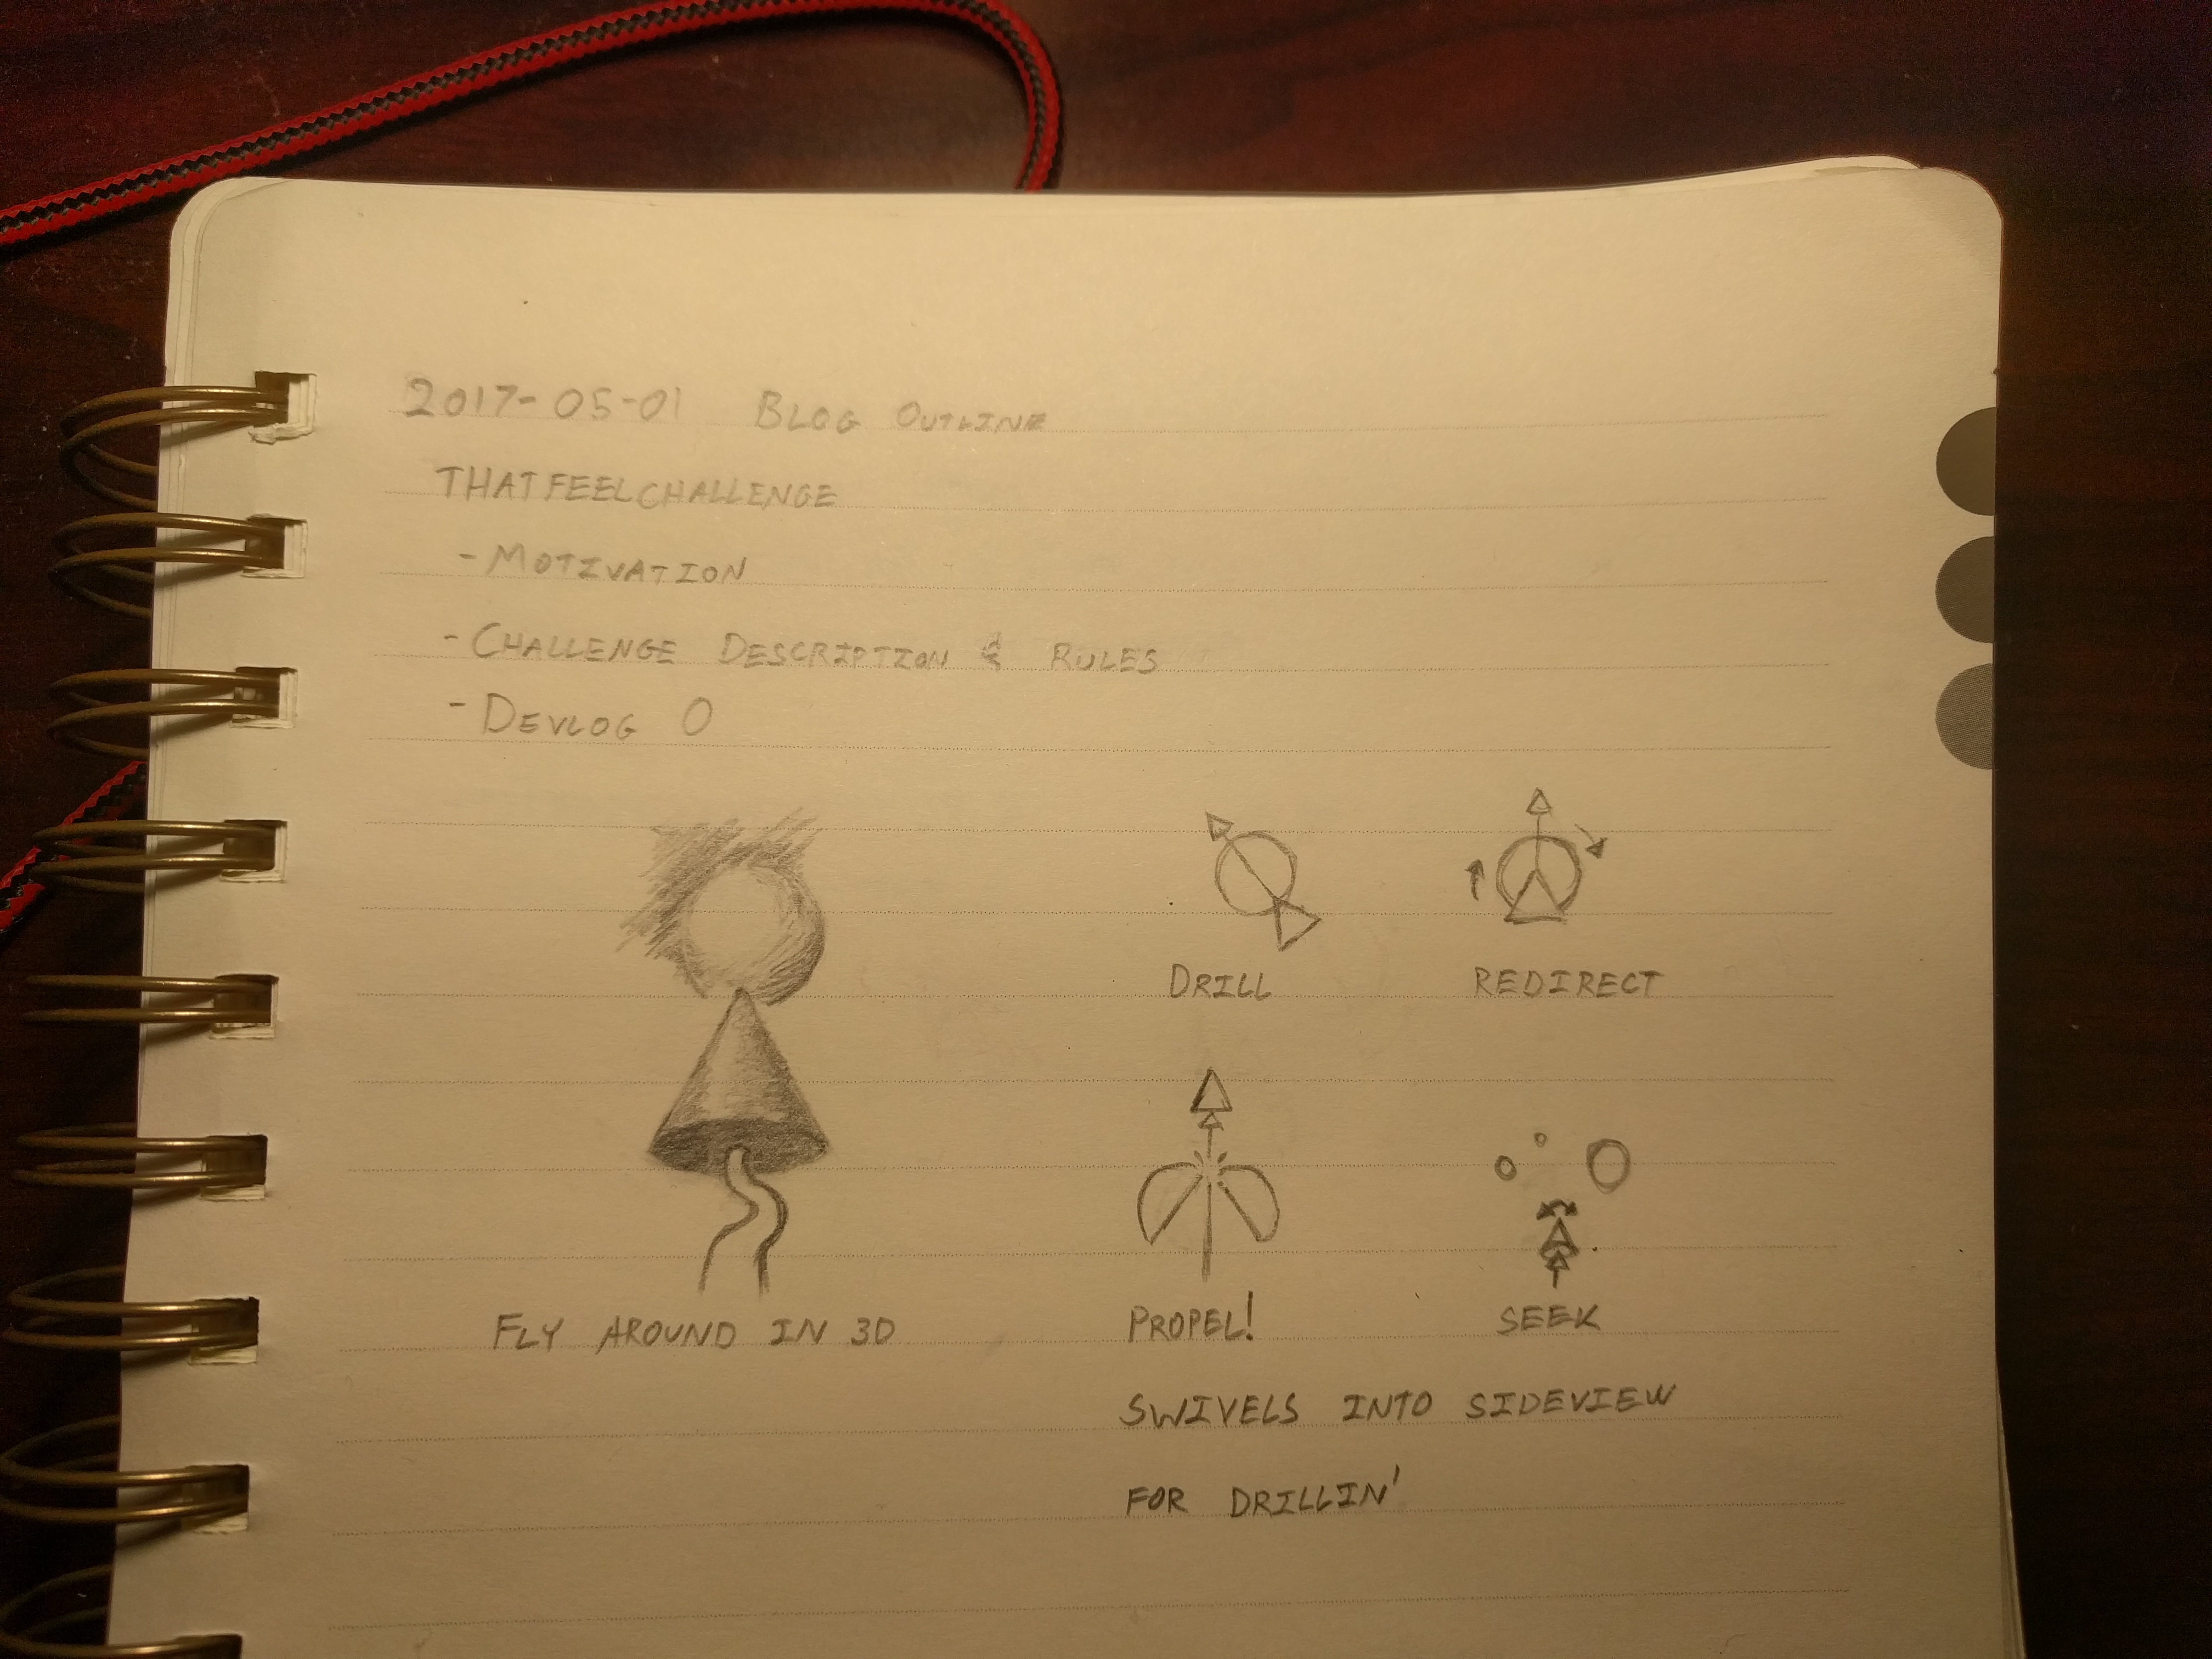 2017-05-01 BLOG OUTLINE
THATFEELCHALLENGE
- MOTIVATION
- CHALLENGE DESCRIPTION & RULES
- DEVLOG 0
DRILL
REDIRECT
FLY AROUND IN 3D
PROPEL!
SEEK
SWIVELS INTO SIDEVIEW
FOR DRILLIN'